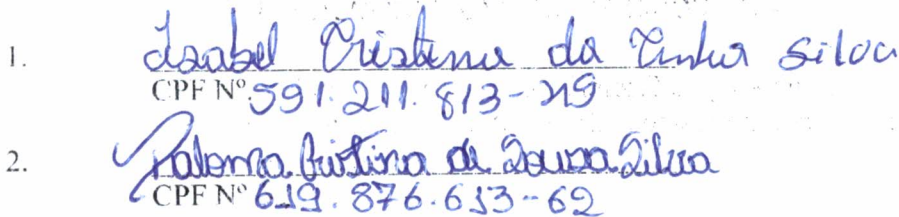 1. Isabel Cristina da Cunha Silva
CPF Nº 591.211.813-49
2. Paloma Cristina de Sousa Silva
CPF Nº 619.876.613-62